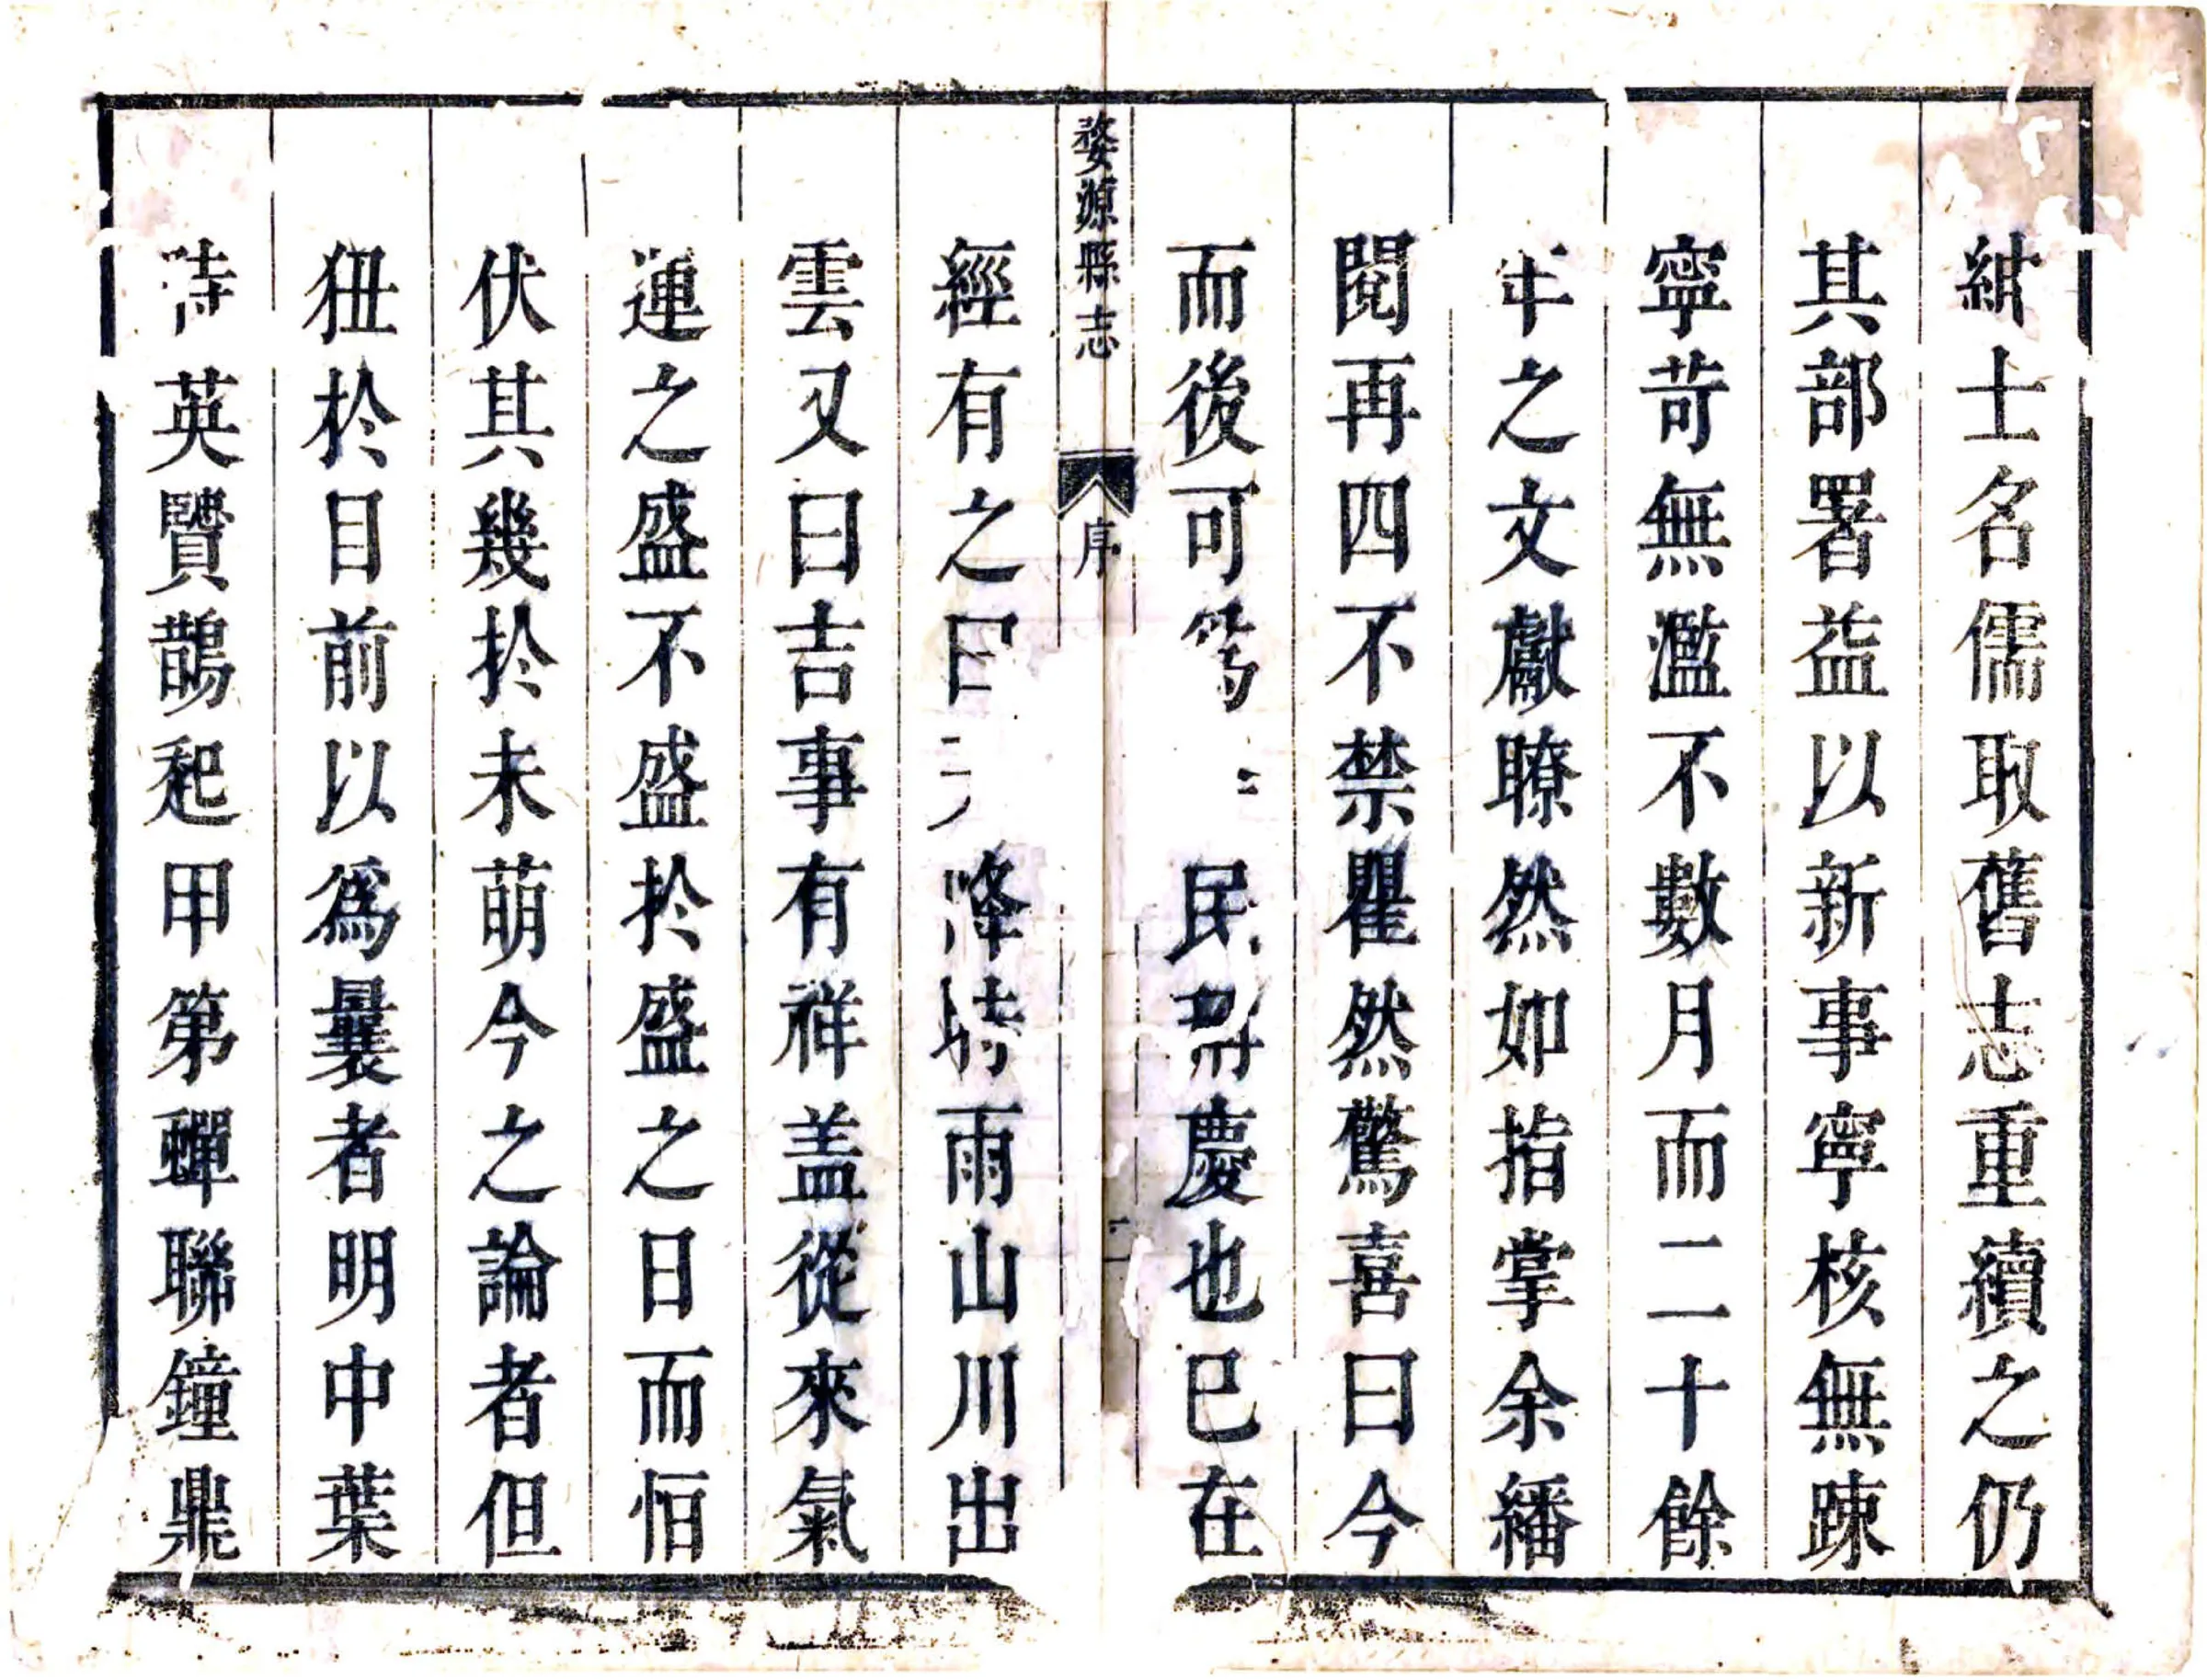 紳士名儒取舊志重續之仍
其部署益以新事寧核無踈
寧苛無濫不數月而二十餘
年之文獻瞭然如指掌余繙
閱再四不禁瞿然驚喜曰今
而後可為民社慶也已在
婺源縣志
序
二
經有之曰天降時雨山川出
雲又曰吉事有祥盖從來氣
運之盛不盛扵盛之日而恒
伏其幾扵未萌今之論者但
狃扵目前以爲曩者明中葉
時英賢鵲起甲第蟬聯鐘鼎